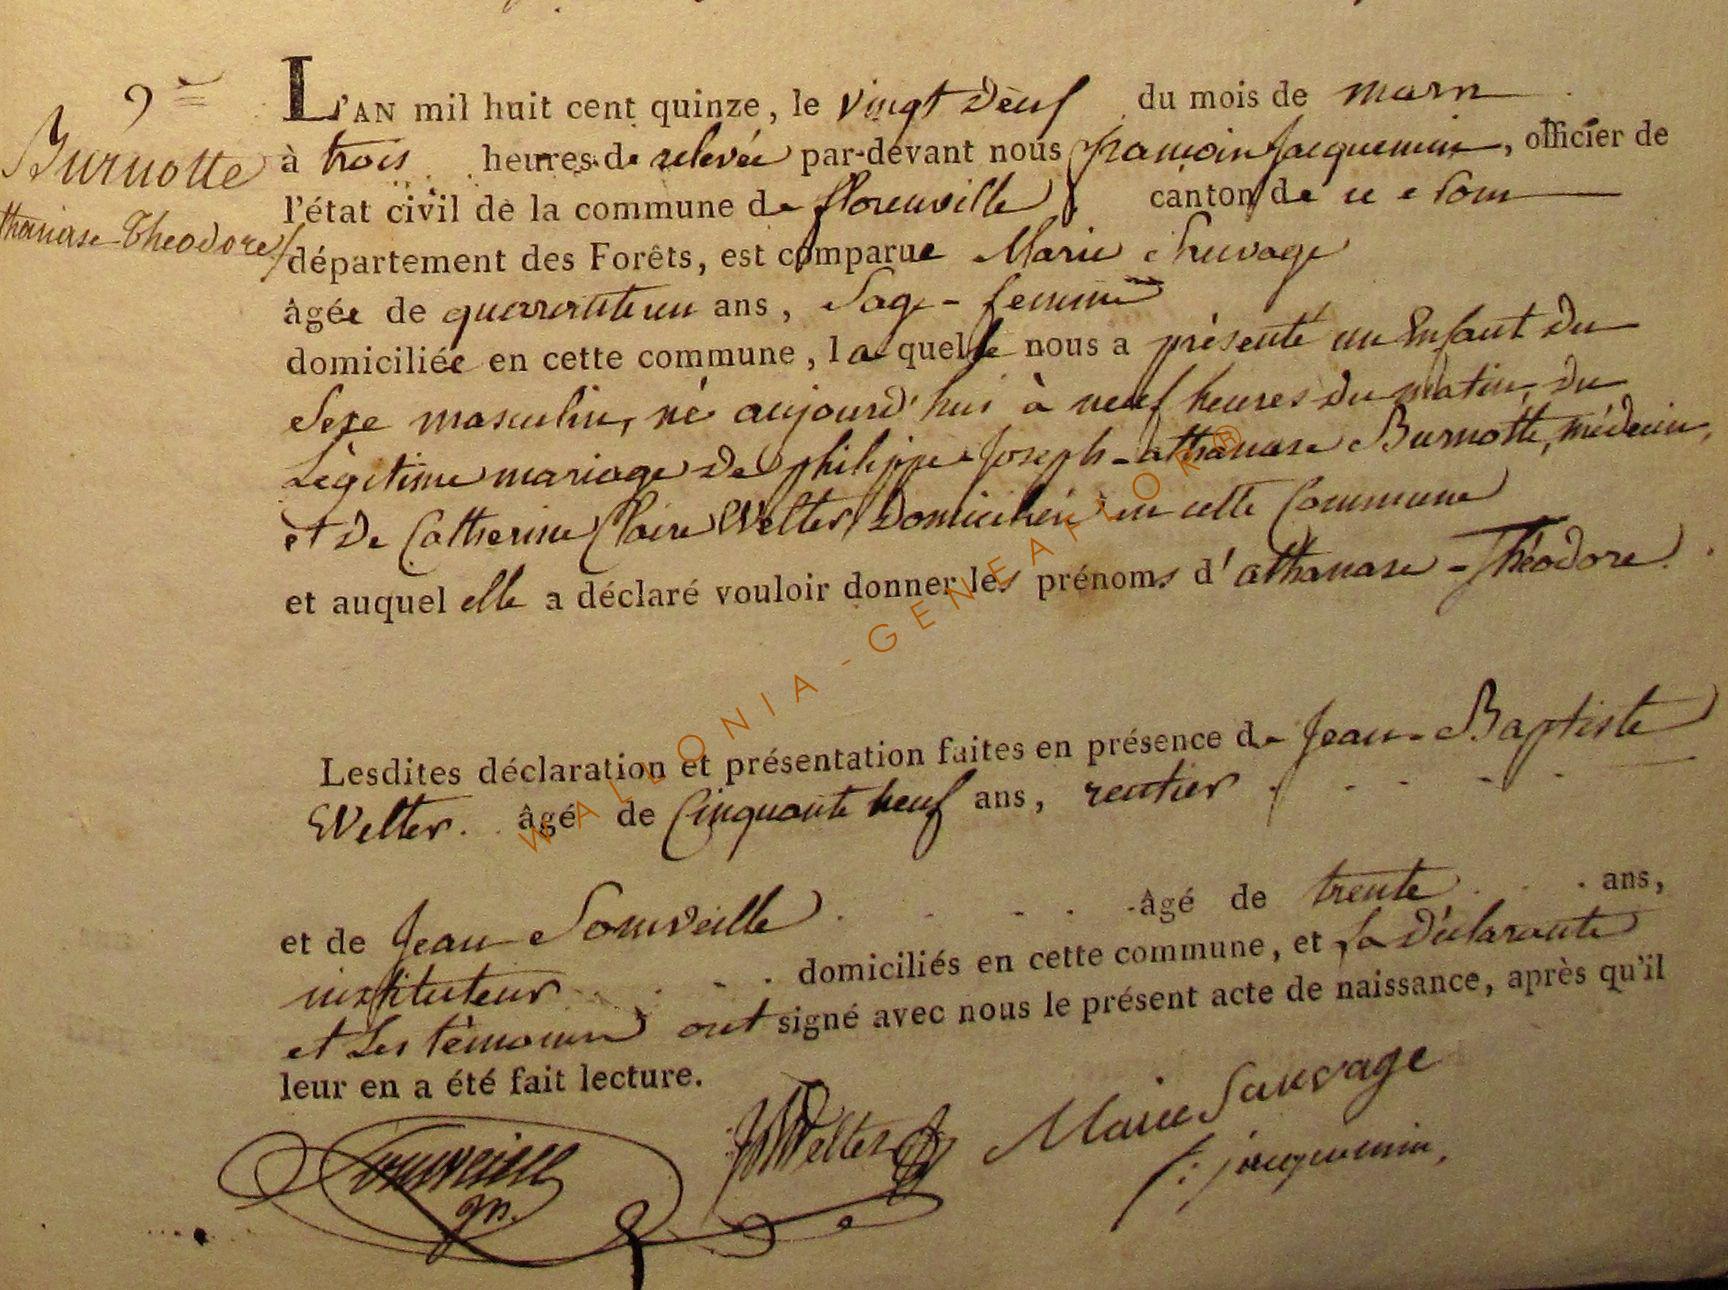 9me
Burnotte
athanase-Théodore
L'AN mil huit cent quinze, le vingt neuf du mois de mars
à trois heures de relevée par-devant nous françois Jacquemin, officier de
l'état civil de la commune de florenville canton de ce nom
département des Forêts, est comparue Marie Sauvage
âgée de quarante un ans, Sage-femme
domiciliée en cette commune, laquelle nous a présenté un Enfant du
Sexe masculin, né aujourd'hui à neuf heures du matin, du
Légitime mariage de philippe-Joseph-athanase Burnotte, médecin,
et de Catherine Claire Welter, Domiciliés en cette Commune
et auquel elle a déclaré vouloir donner les prénoms d'athanase-Théodore.
Lesdites déclaration et présentation faites en présence de Jean-Baptiste
Welter. âgé de Cinquante neuf ans, rentier
et de Jean Somveille âgé de trente ans,
instituteur domiciliés en cette commune, et la Déclarante
et Les témoins ont signé avec nous le présent acte de naissance, après qu'il
leur en a été fait lecture.
Somveille JBWelter Marie Sauvage
f: jacquemin,
WALLONIA-GENEAFLOR®